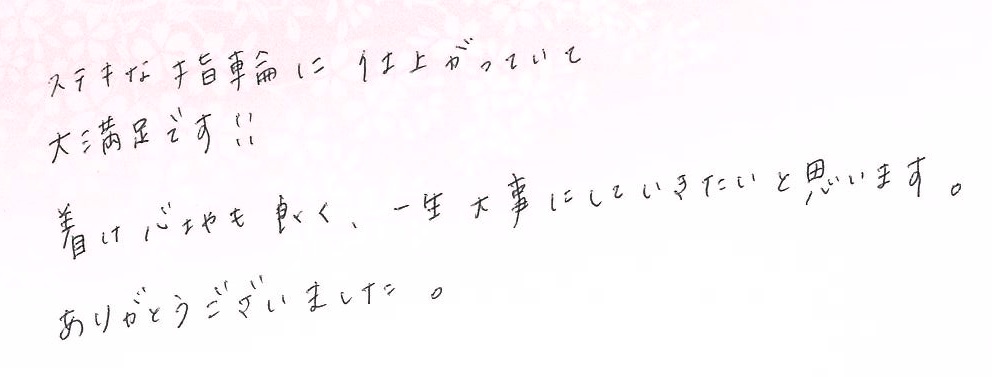 ステキな指輪に仕上がっていて
大満足です!!
着け心地も良く、一生大事にしていきたいと思います。
ありがとうございました。